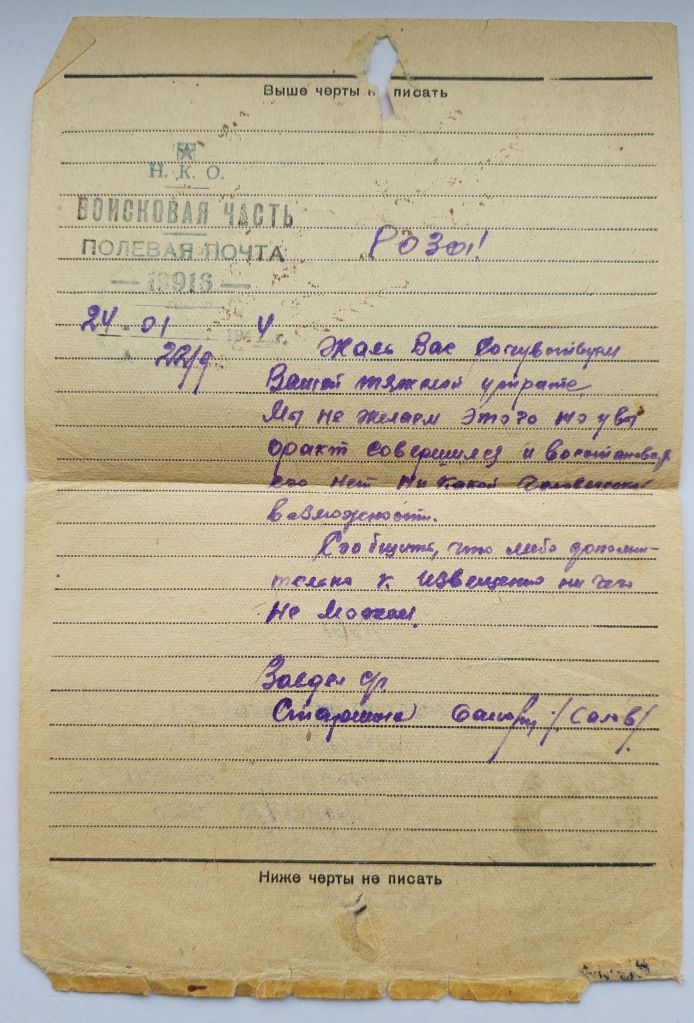 Выше черты не писать
Н. К. О.
ВОИСКОВАЯ ЧАСТЬ
ПОЛЕВАЯ ПОЧТА
РОЗА!
24 - 01 1944 г.
Жаль Вас Сочувствуем
22/9
Вашей тяжелой утрате.
Мы не желаем этого но увы
факт совершился и
его нет ни какой
возможности.
Сообщить, что либо дополни-
тельно к извещению ни чего
не можем.
Старшина
Ниже черты не писать